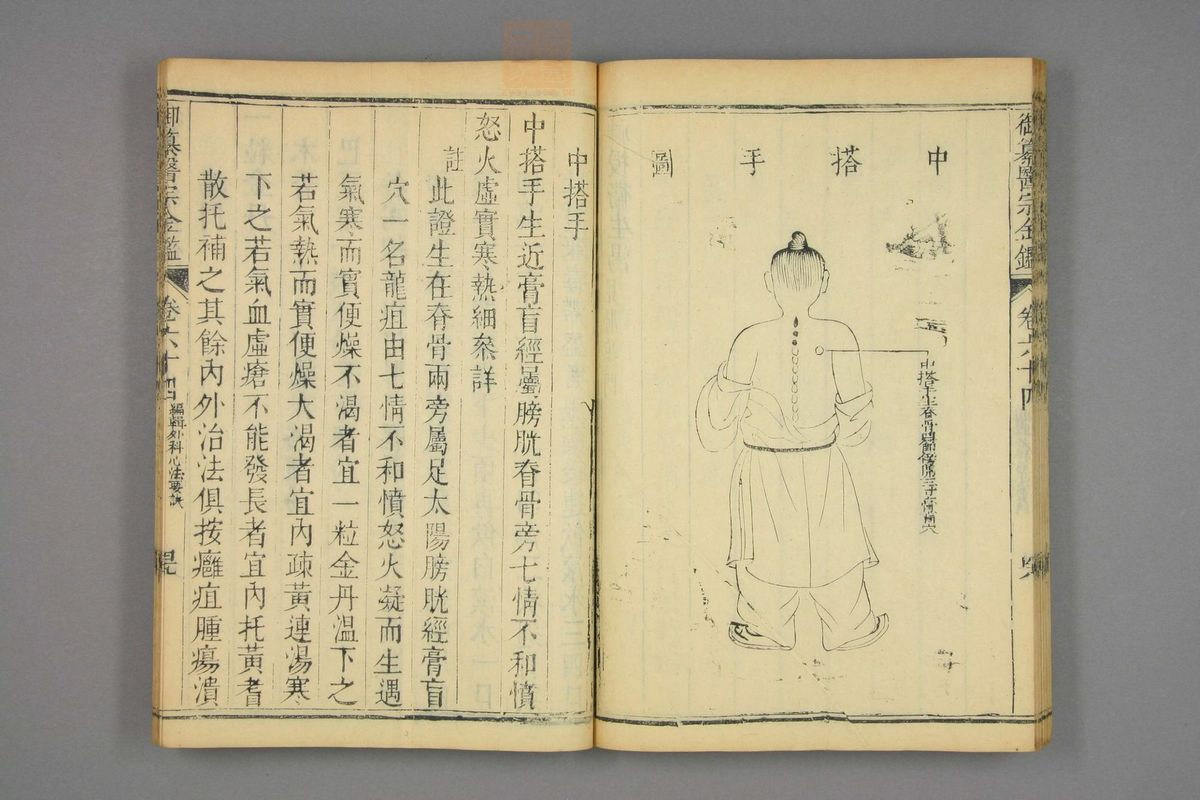 御纂醫宗金鑑
卷六十四
中搭手圖
中搭手
中搭手生近膏肓經屬膀胱脊骨旁七情不和憤
怒火虛實寒熱細叅詳
註此證生在脊骨兩旁屬足太陽膀胱經膏肓
穴一名龍疽由七情不和憤怒火凝而生遇
氣寒而實便燥不渴者宜一粒金丹溫下之
若氣熱而實便燥大渴者宜內疎黃連湯寒
下之若氣血虛瘡不能發長者宜內托黃耆
散托補之其餘內外治法俱按癰疽腫瘍潰
御纂醫宗金鑑
卷六十四
編輯外科心法要訣